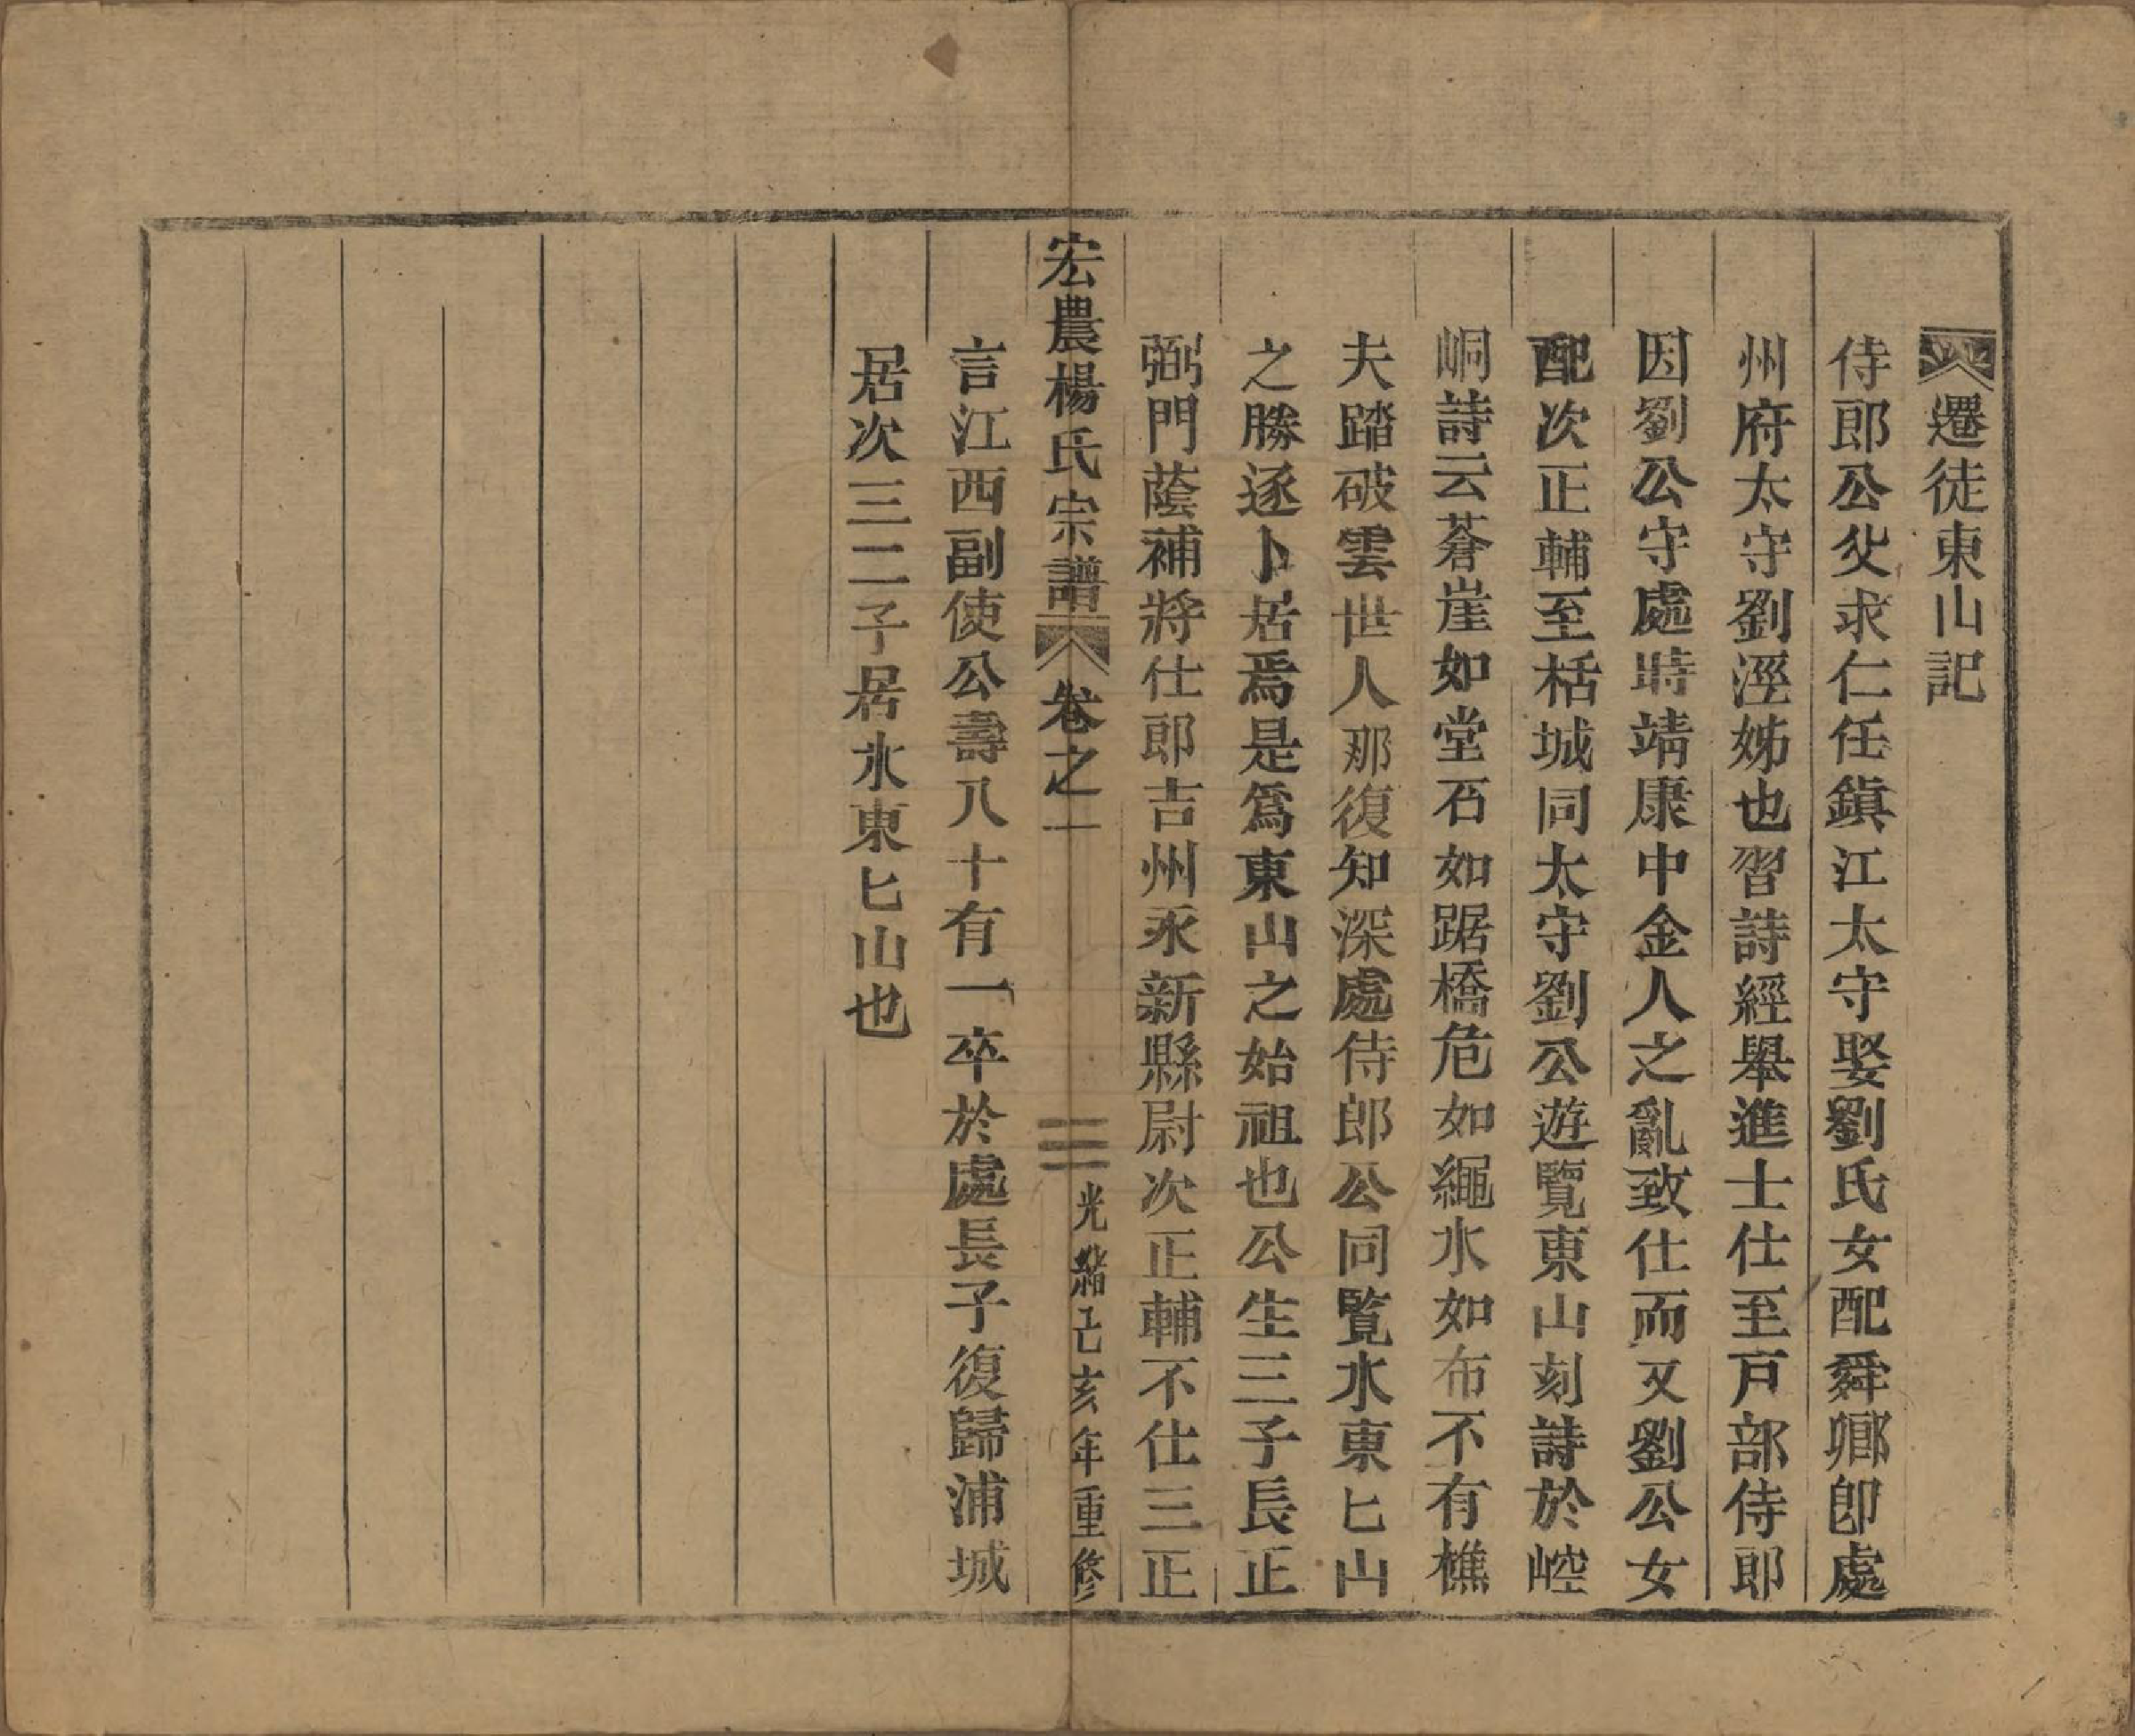 遷徙東山記
侍郎公父求仁任鎮江太守娶劉氏女配舜鄉卽處
州府太守劉涇姊也習詩經舉進士仕至戸部侍郎
因劉公守處時靖康中金人之亂致仕而又劉公女
配次正輔至栝城同太守劉公遊覽東山刻詩於崆
峒詩云蒼崖如堂石如踞橋危如繩水如布不有樵
夫踏破雲世人那復知深處侍郎公同覽水東匕山
之勝逐卜居焉是爲東山之始祖也公生三子長正
弼門蔭補將仕郎吉州永新縣尉次正輔不仕三正
宏農楊氏宗譜 卷之一 三 光緒己亥年重修
言江西副使公壽八十有一卒於處長子復歸浦城
居次三二子居水東匕山也